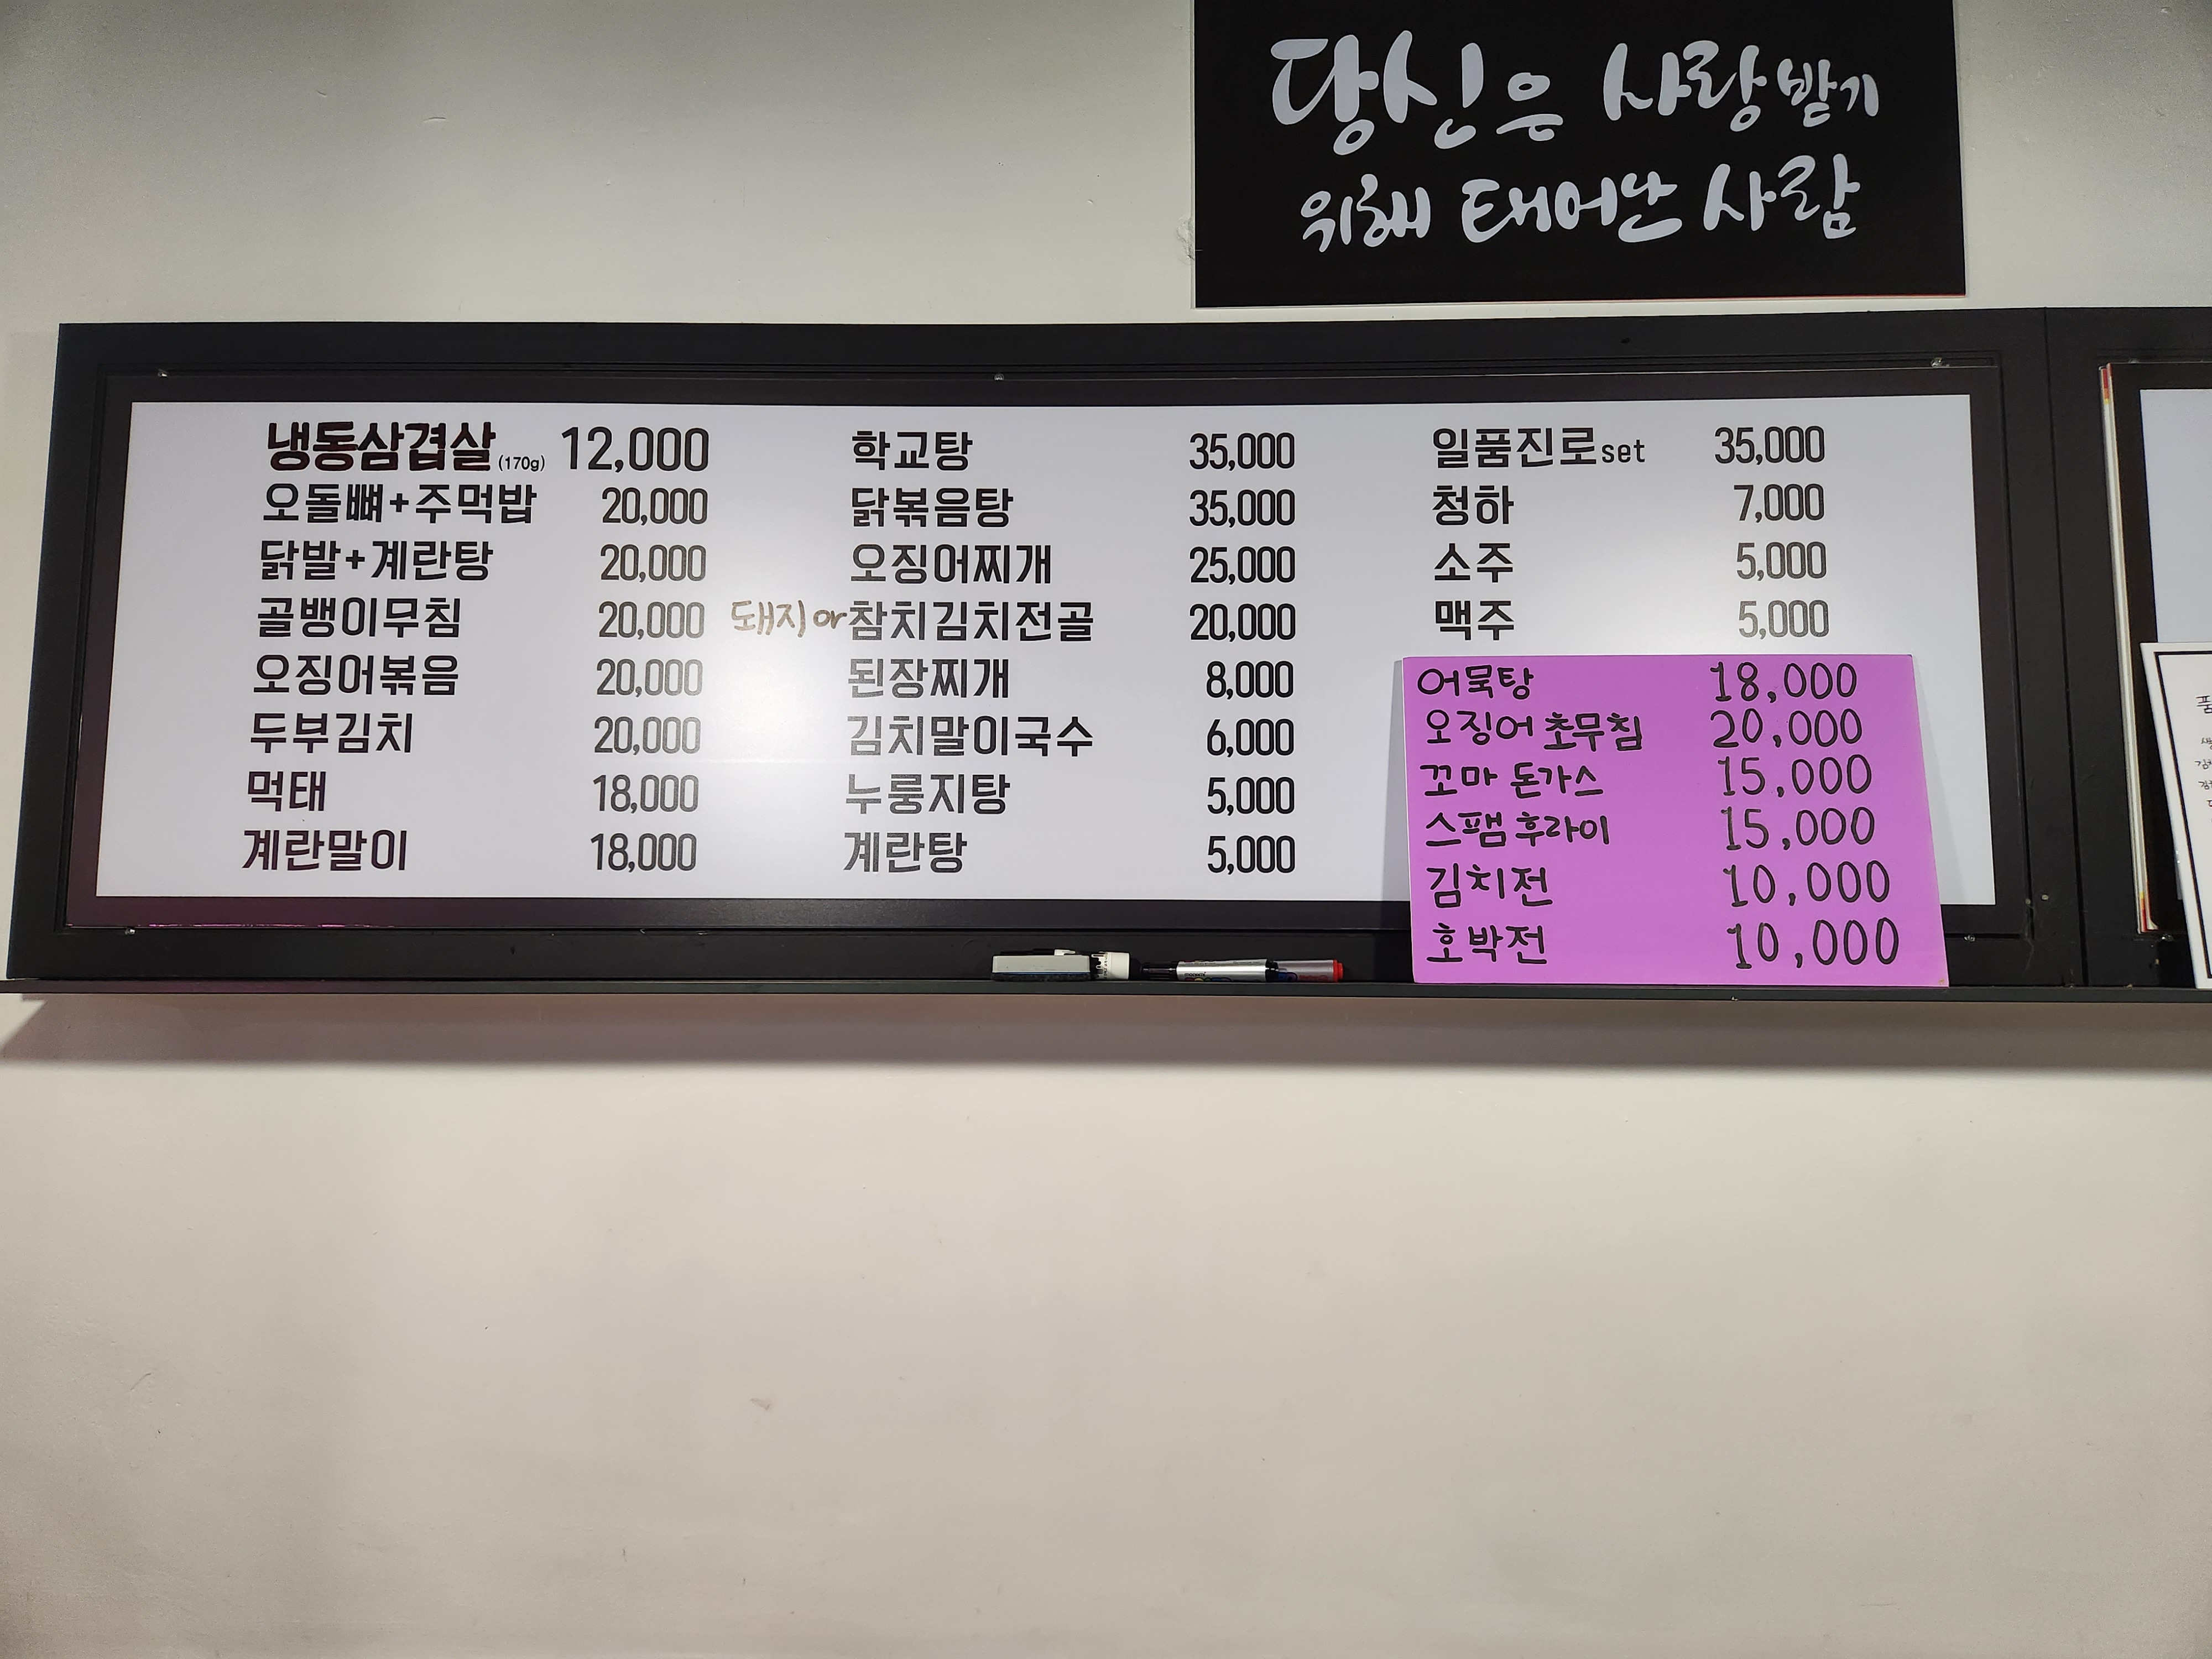 당신은 사랑받기
위해 태어난 사람
냉동삼겹살(170g) 12,000
오돌뼈+주먹밥 20,000
닭발+계란탕 20,000
골뱅이무침 20,000
오징어볶음 20,000
두부김치 20,000
먹태 18,000
계란말이 18,000
학교탕 35,000
닭볶음탕 35,000
오징어찌개 25,000
돼지or참치김치전골 20,000
된장찌개 8,000
김치말이국수 6,000
누룽지탕 5,000
계란탕 5,000
일품진로set 35,000
청하 7,000
소주 5,000
맥주 5,000
어묵탕 18,000
오징어 초무침 20,000
꼬마 돈가스 15,000
스팸 후라이 15,000
김치전 10,000
호박전 10,000